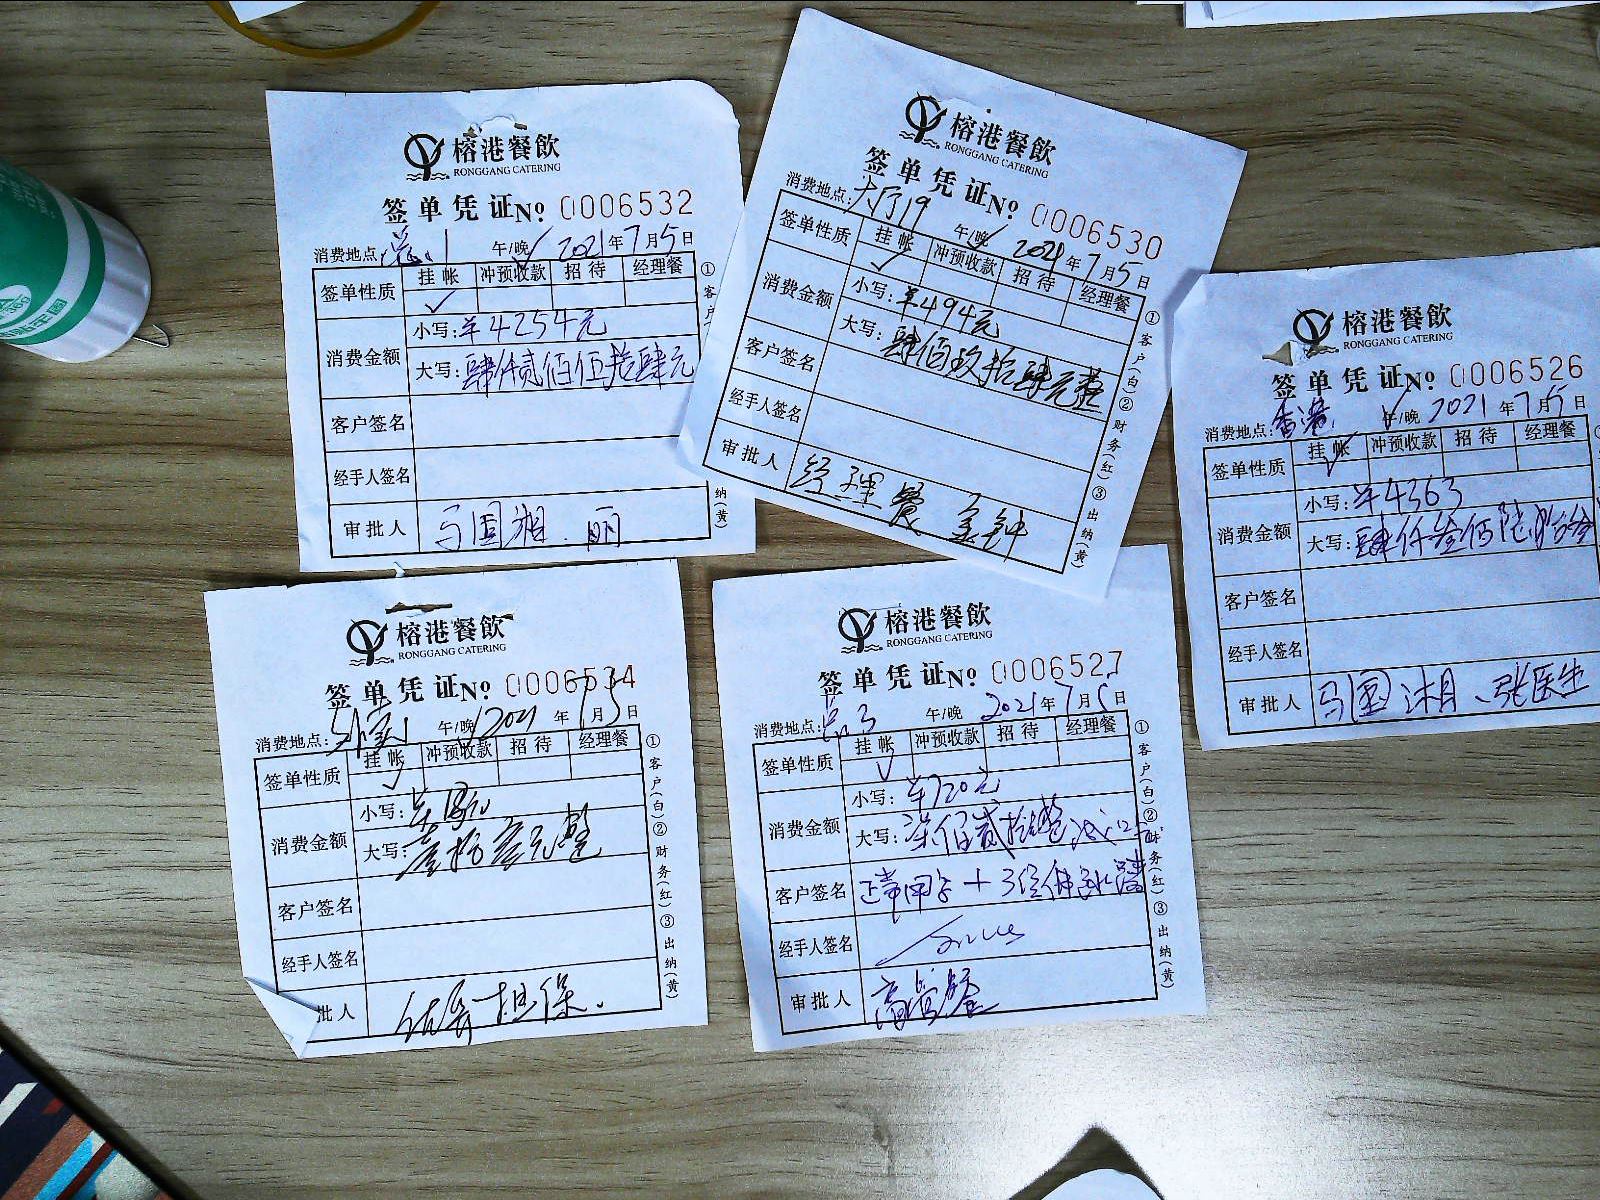 榕港餐飲
RONGGANG CATERING
签单凭证 No 0006532
消费地点: 午/晚 2021年7月5日
签单性质 挂帐 冲预收款 招待 经理餐
✓
消费金额 小写: ¥4254元
大写: 肆仟贰佰伍拾肆元
客户签名
经手人签名
审批人 马国湘.丽
①客户
纳(黄)
榕港餐飲
RONGGANG CATERING
签单凭证 No 0006530
消费地点: 大厅19 午/晚 2021年7月5日
签单性质 挂帐 冲预收款 招待 经理餐
✓
消费金额 小写: ¥494元
大写: 肆佰玖拾肆元整
客户签名
经手人签名
审批人 经理餐 金钟
①客户(白)②财务(红)③出纳(黄)
榕港餐飲
RONGGANG CATERING
签单凭证 No 0006526
消费地点: 香港 午/晚 2021年7月5日
签单性质 挂帐 冲预收款 招待 经理餐
✓
消费金额 小写: ¥4363
大写: 肆仟叁佰陆拾叁
客户签名
经手人签名
审批人 马国湘、张医生
榕港餐飲
RONGGANG CATERING
签单凭证 No 0006534
消费地点: 午/晚 2021年7月5日
签单性质 挂帐 冲预收款 招待 经理餐
✓
消费金额 小写:
大写: 元整
客户签名
经手人签名
批人 担保.
①客户(白)②财务(红)③出纳(黄)
榕港餐飲
RONGGANG CATERING
签单凭证 No 0006527
消费地点: 午/晚 2021年7月5日
签单性质 挂帐 冲预收款 招待 经理餐
✓
消费金额 小写: ¥720元
大写: 柒佰贰拾整
客户签名 正常用餐+3位
经手人签名
审批人 高管餐
①客户(白)②财务(红)③出纳(黄)